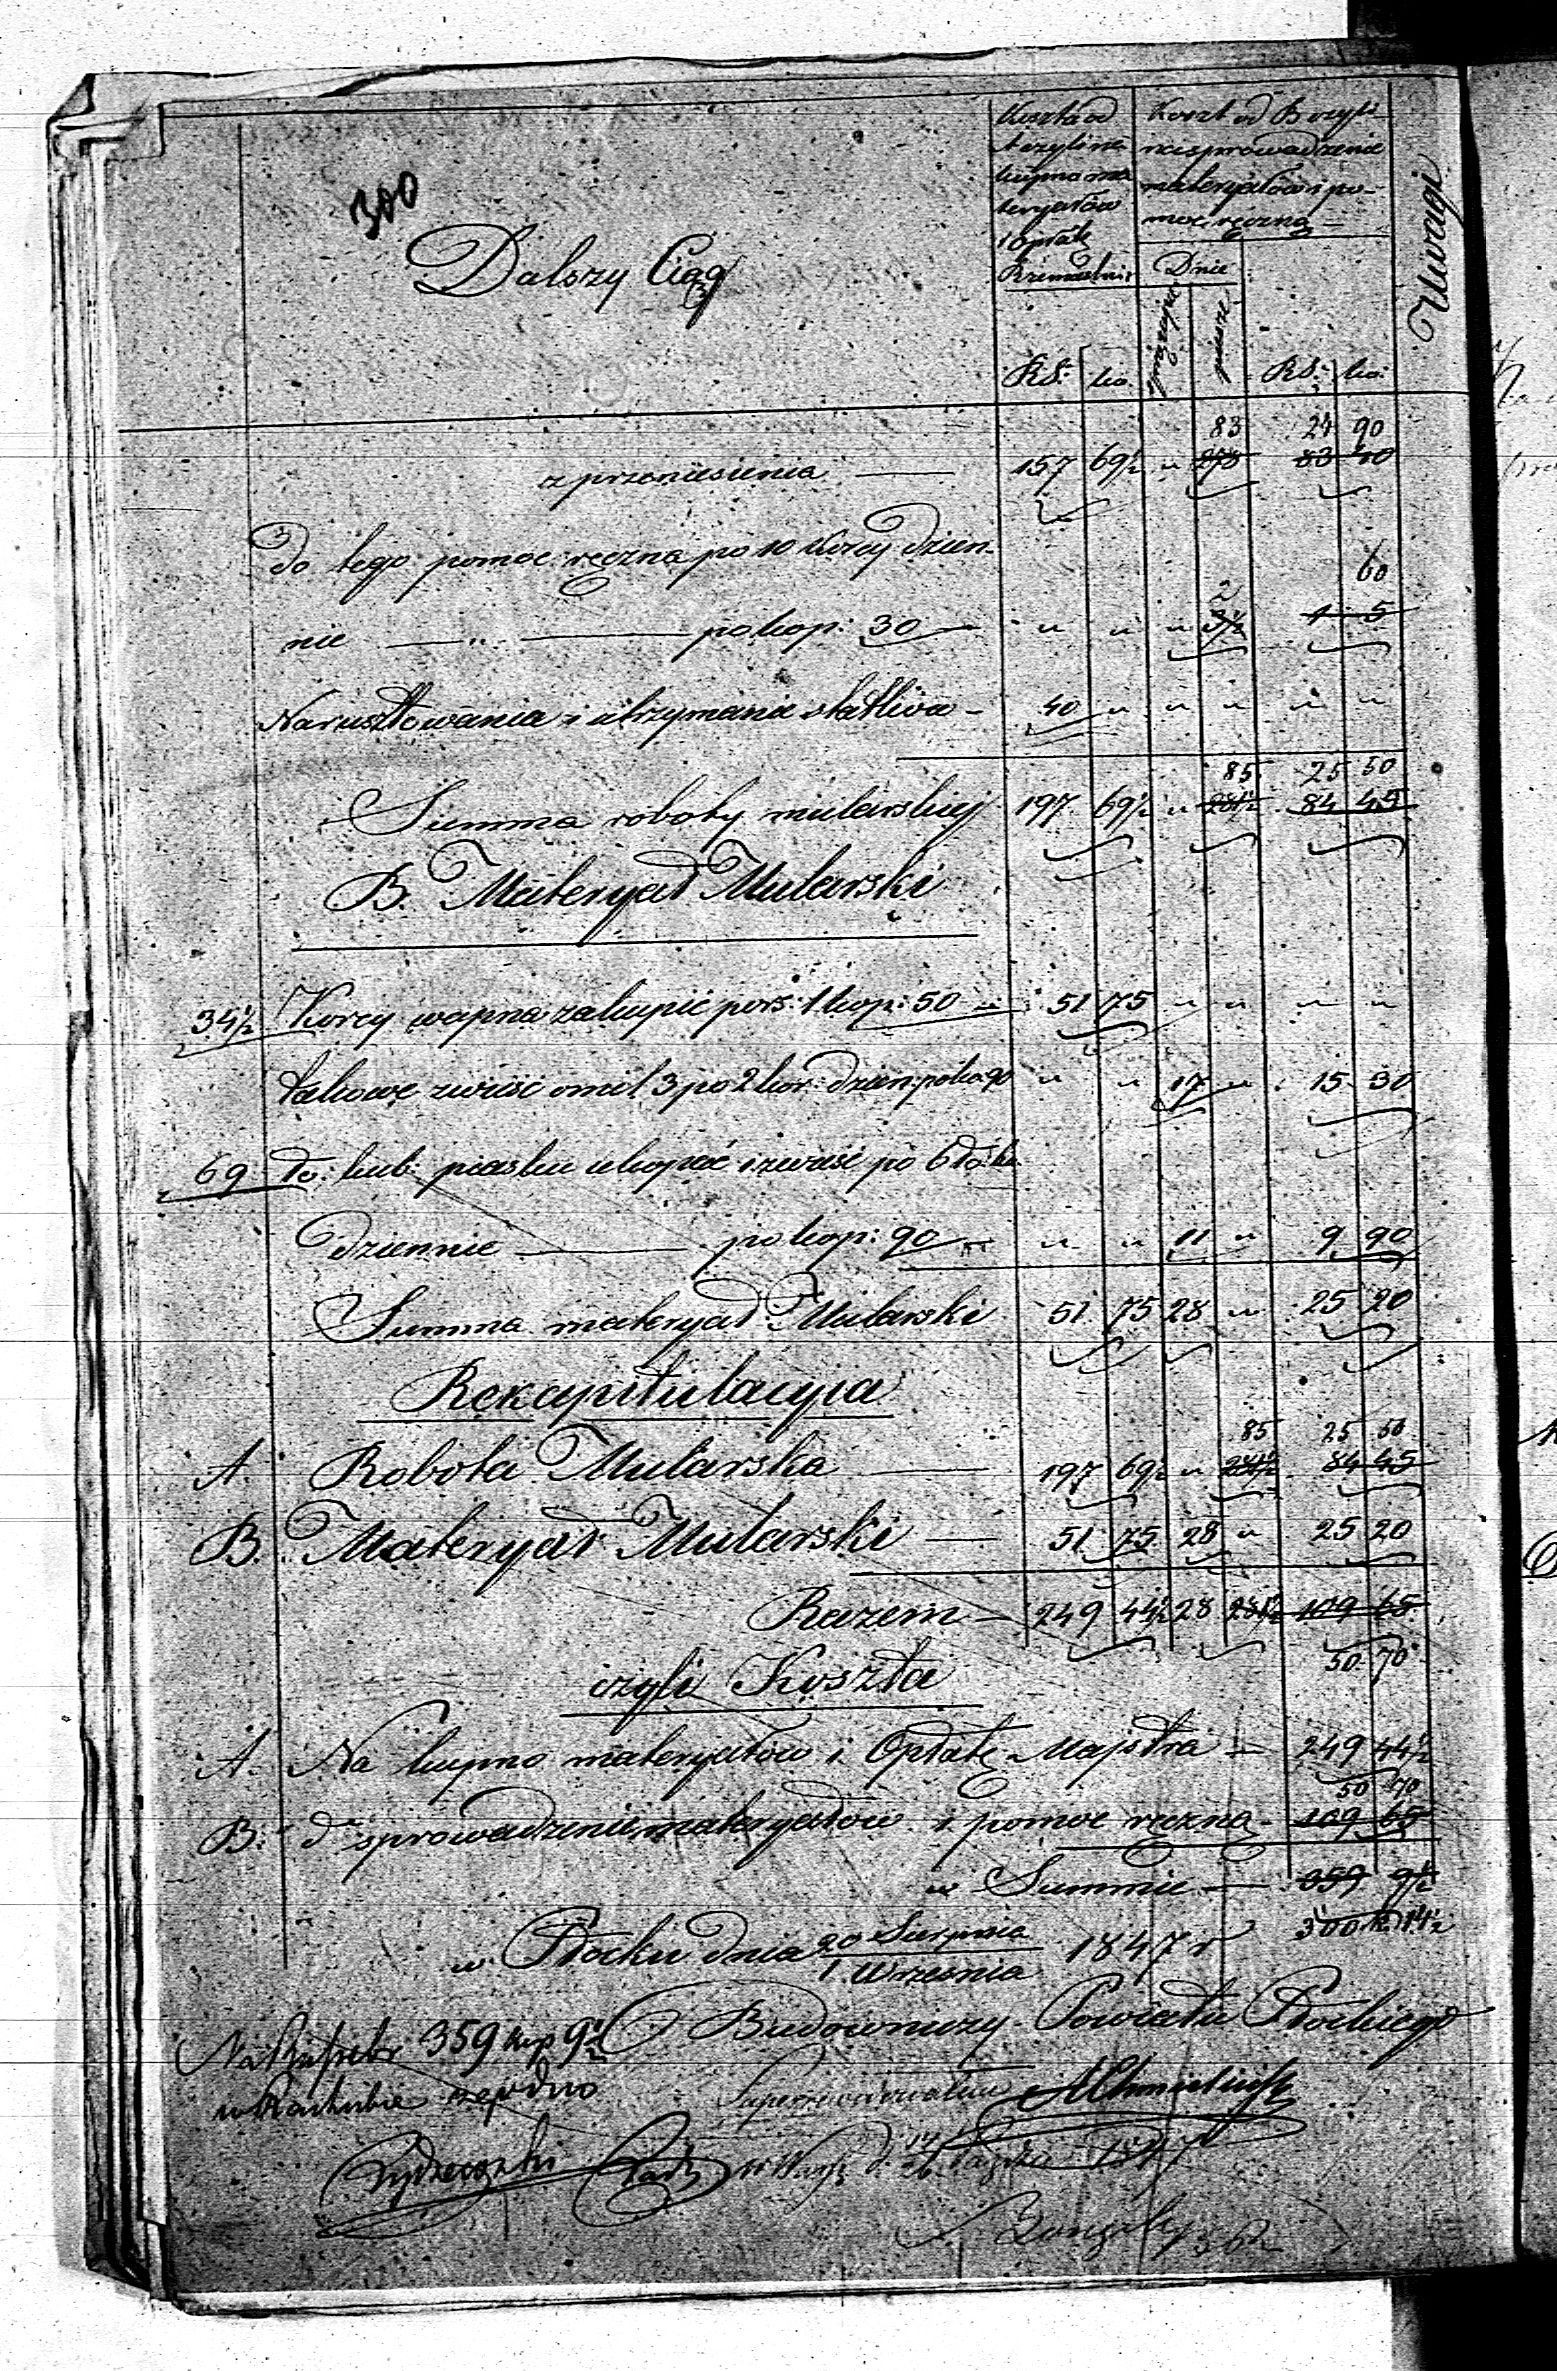 300
Dalszy Ciąg
Koszta od
A czyli na
kupno ma
teryałów
i Opłatę
Rzemieślni:
Koszt od B czyli
na sprowadzenie
materyałów i po-
moc ręczną —
Uwagi
Dnie
sprzężajne
piesze
RS: ko: RS: ko:
83 24 90
z przeniesienia — 157 69½ " 278 83 40
do tego pomoc ręczna po 10 korcy dzien-
60
2
nie — " — po kop: 30 — " " " 3½ 1 5
Na rusztowania i utrzymanie statków — 40 " " " " "
85 25 50
Summa roboty mularskiej 197 69½ " 281½ 84 45
B. Materyał Mularski
34½ Korcy wapna zakupić po rs: 1 kop: 50 " 51 75 " " " "
takowe zwieść o mil 3 po 2 kor: dzien: po ko 90 " " 17 " 15 30
69 sto: kub: piasku ukopać i zwieść po 6 stó: ku
dziennie — po kop: 90 — " " 11 " 9 90
Summa materyał: Mularski 51 75 28 " 25 20
Rekapitulacyia
85 25 50
A. Robota Mularska — 197 69½ " 281½ 84 45
B. Materyał Mularski — 51 75 28 " 25 20
Razem — 249 44½ 28 281½ 109 65
50 70
czyli Koszta
A. Na kupno materyałów i Opłatę Majstra — 249 44½
50 70
B. do sprowadzenie materyałów i pomoc ręczną — 109 65
w Summie — 359 9½
300 k. 14½
w Płocku dnia 20 Sierpnia / 1 Września 1847 r
Budowniczy Powiatu Płockiego
359 kop 9½
w Rachubie zgodno